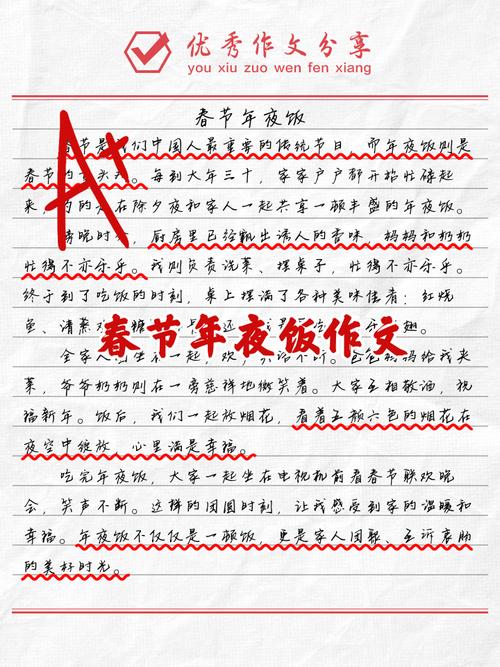 优秀作文分享
you xiu zuo wen fen xiang
春节年夜饭
A+
春节是我们中国人最重要的传统节日,而年夜饭则是
春节的重头戏。每到大年三十,家家户户都开始忙碌起
来,为的是在除夕夜和家人一起共享一顿丰盛的年夜饭。
傍晚时分,厨房里已经飘出诱人的香味,妈妈和奶奶
忙得不亦乐乎。我则负责洗菜、摆桌子,忙得不亦乐乎。
终于到了吃饭的时刻,桌上摆满了各种美味佳肴:红烧
鱼、清蒸
翅。
春节年夜饭作文
全家人 坐 一起,欢 爸爸妈妈给我夹
菜,爷爷奶奶则在一旁慈祥地微笑着。大家互相敬酒,祝
福新年。饭后,我们一起放烟花,看着五颜六色的烟花在
夜空中绽放,心里满是幸福。
吃完年夜饭,大家一起坐在电视机前看春节联欢晚
会,笑声不断。这样的团圆时刻,让我感受到家的温暖和
幸福。年夜饭不仅仅是一顿饭,更是家人团聚、互诉衷肠
的美好时光。